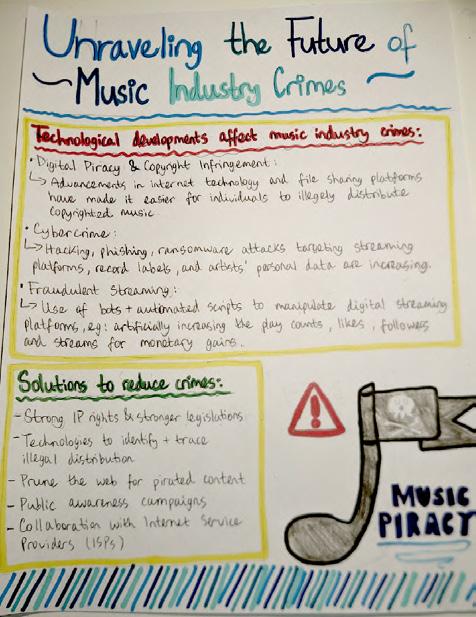 Unraveling the Future of
Music Industry Crimes
Technological developments affect music industry crimes:
• Digital Piracy & Copyright Infringement:
↳ Advancements in internet technology and file sharing platforms
have made it easier for individuals to illegely distribute
copyrighted music
• Cybercrime:
↳ Hacking, phishing, ransomware attacks targeting streaming
platforms, record labels, and artists' personal data are increasing.
• Fraudulent Streaming:
↳ Use of bots + automated scripts to manipulate digital streaming
platforms, eg: artificially increasing the play counts, likes, followers
and streams for monetary gains.
Solutions to reduce crimes:
- Strong IP rights & stronger legislations
- Technologies to identify + trace
illegal distribution
- Prune the web for pirated content
- Public awareness campaigns
- Collaboration with Internet Service
Providers (ISPs)
!
MUSIC
PIRACY